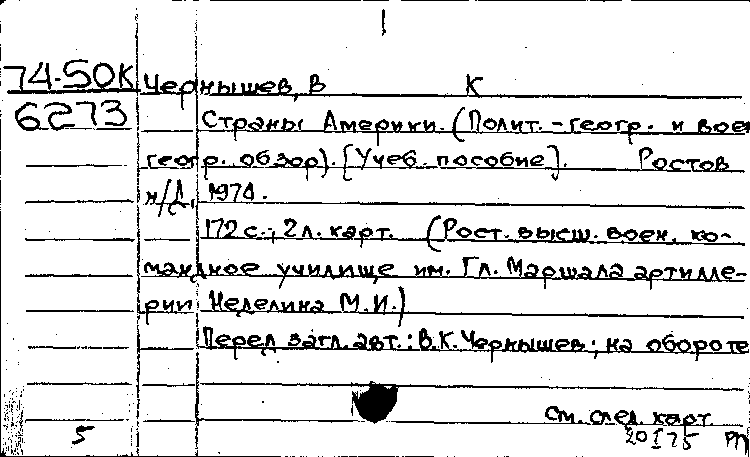 1
74-50К Чернышев, В К
6273 Страны Америки. (Полит.-геогр. и воен
геогр. обзор). [Учеб. пособие]. Ростов
н/Д, 1974.
172 с.; 2 л. карт. (Рост. высш. воен. ко-
мандное училище им. Гл. Маршала артилле-
рии Неделина М.И.)
Перед загл. авт.: В.К. Чернышев; на обороте
См. след. карт
5 20 I 75